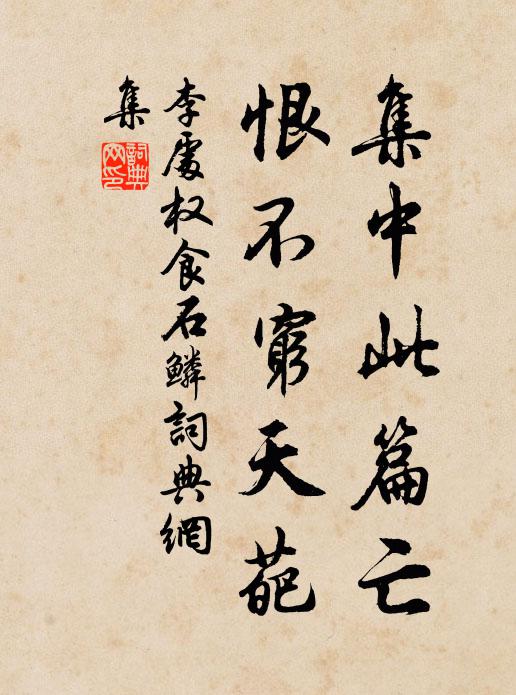 集中此篇亡
恨不窮天葩
李處权食石鱗詞典網
集
詞典
网印